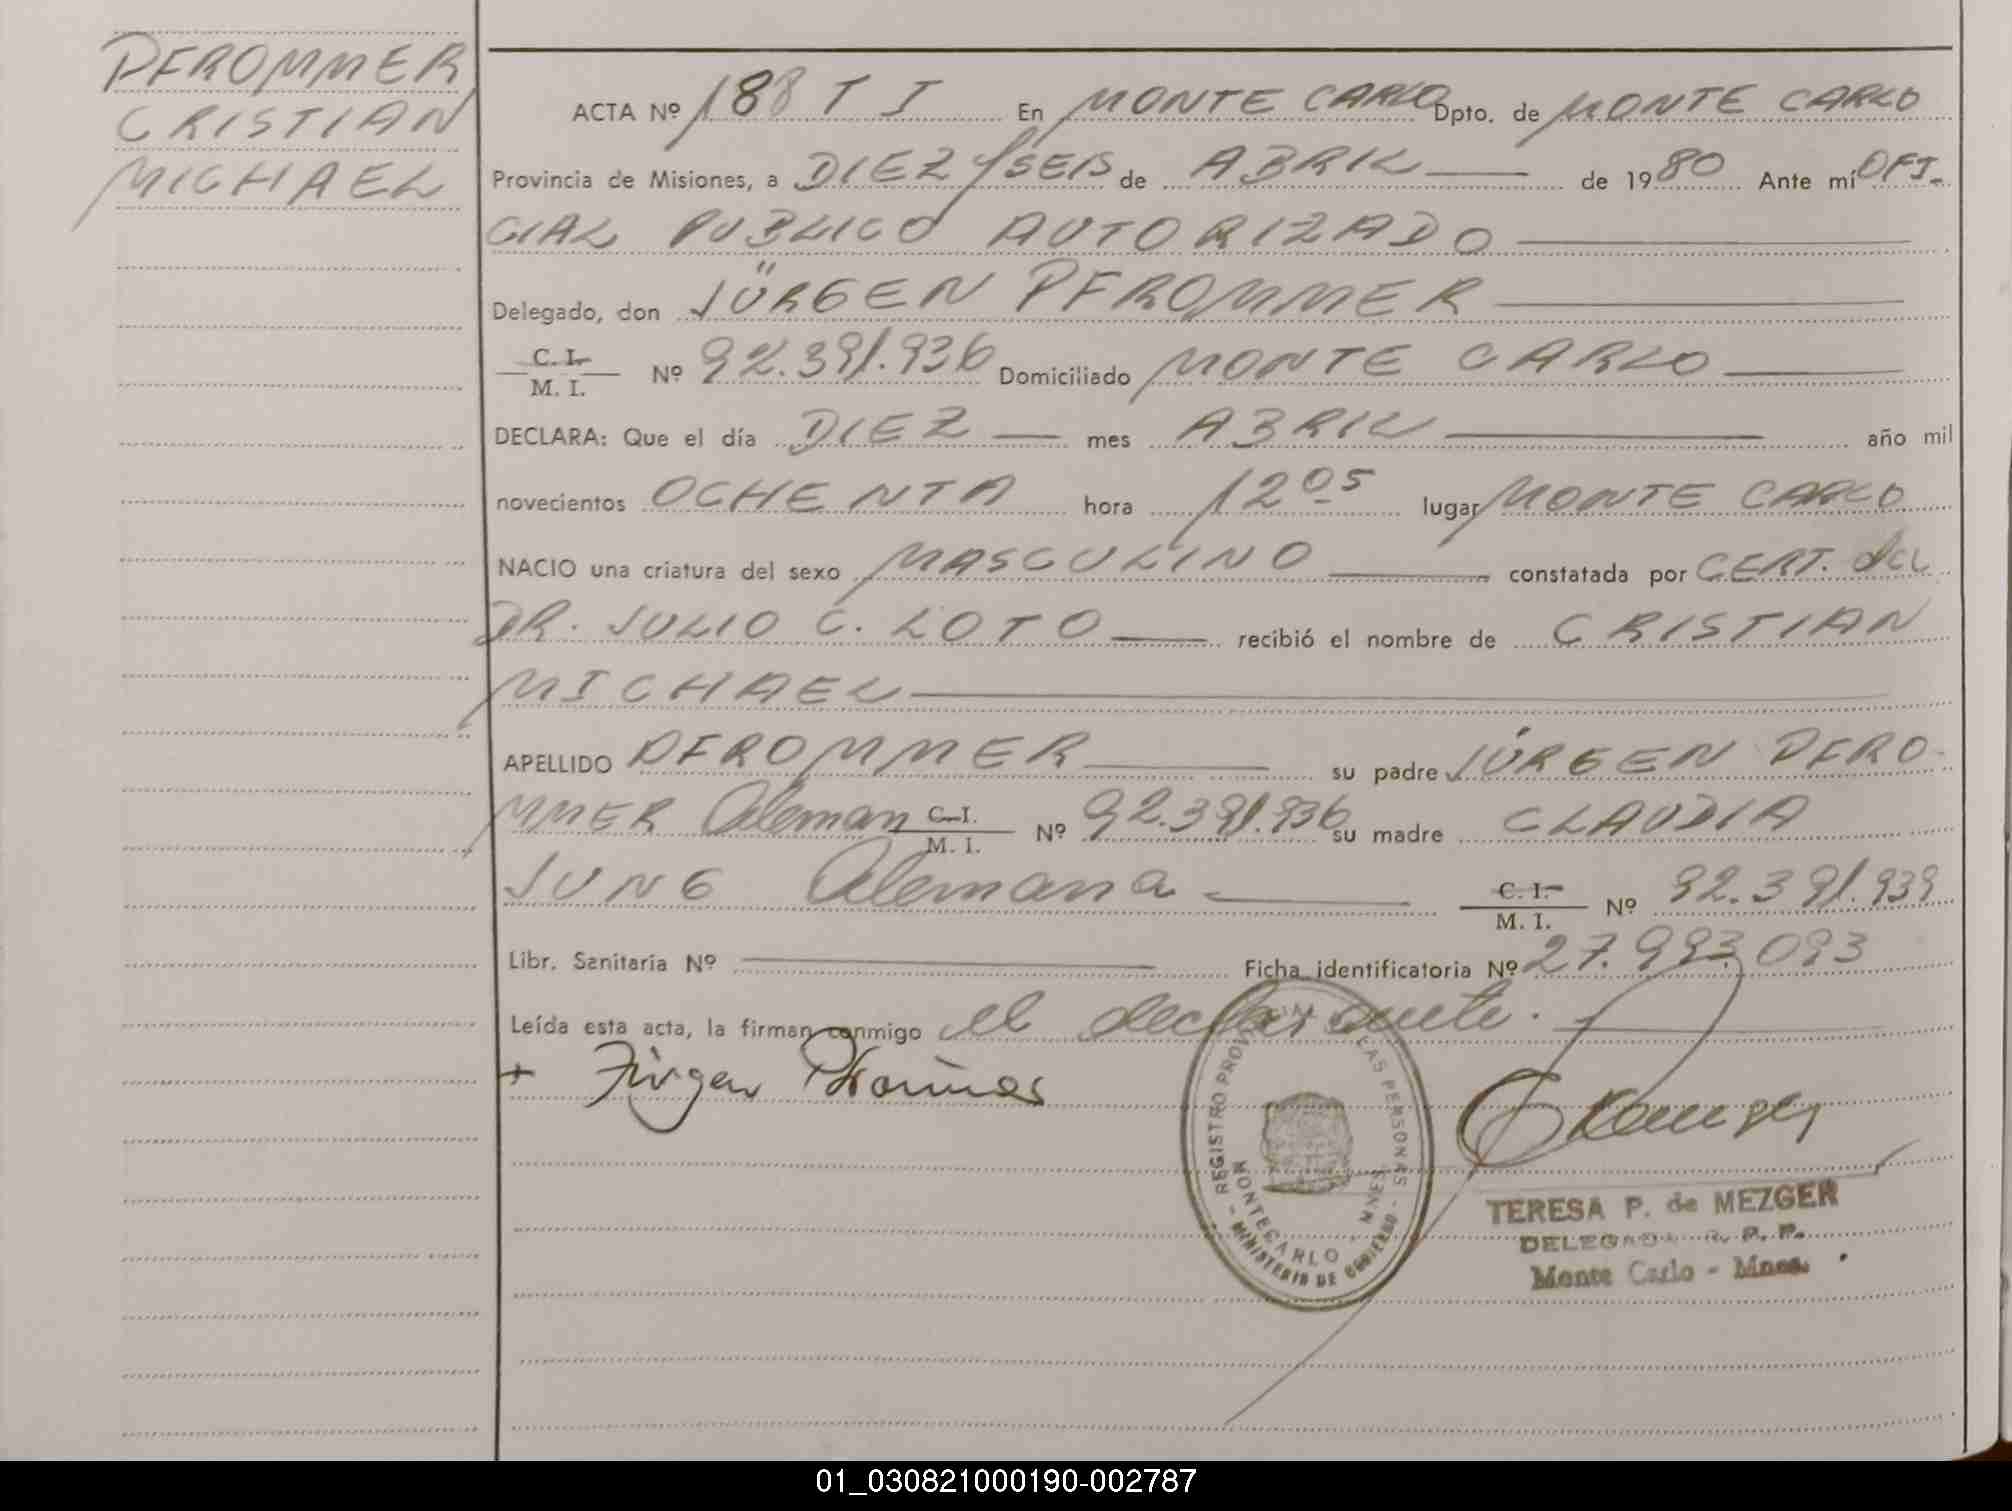 PFROMMER
CRISTIAN
MICHAEL
ACTA Nº 188 T I En MONTE CARLO Dpto. de MONTE CARLO
Provincia de Misiones, a DIEZ y SEIS de ABRIL de 1980 Ante mí OFI-
CIAL PUBLICO AUTORIZADO
Delegado, don JÜRGEN PFROMMER
C. I.
M. I. Nº 92.391.936 Domiciliado MONTE CARLO
DECLARA: Que el día DIEZ mes ABRIL año mil
novecientos OCHENTA hora 12 05 lugar MONTE CARLO
NACIO una criatura del sexo MASCULINO constatada por CERT. del
DR. JULIO C. LOTO recibió el nombre de CRISTIAN
MICHAEL
APELLIDO PFROMMER su padre JÜRGEN PFRO-
MMER Aleman C. I. M. I. Nº 92.391.936 su madre CLAUDIA
JUNG Alemana C. I. M. I. Nº 92.391.939
Libr. Sanitaria Nº Ficha identificatoria Nº 27.993.093
Leída esta acta, la firman conmigo el declarante.
+ Jürgen Pfrommer
REGISTRO PROVINCIAL DE LAS PERSONAS
MONTECARLO - MNES.
- MINISTERIO DE GOBIERNO -
TERESA P. de MEZGER
DELEGADA R. P. P.
Monte Carlo - Mnes.
01_030821000190-002787